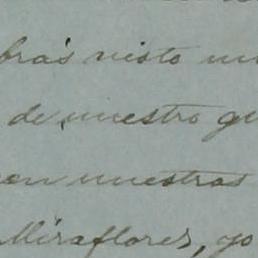 brás visto un
de nuestro qu
en nuestras
Miraflores, yo